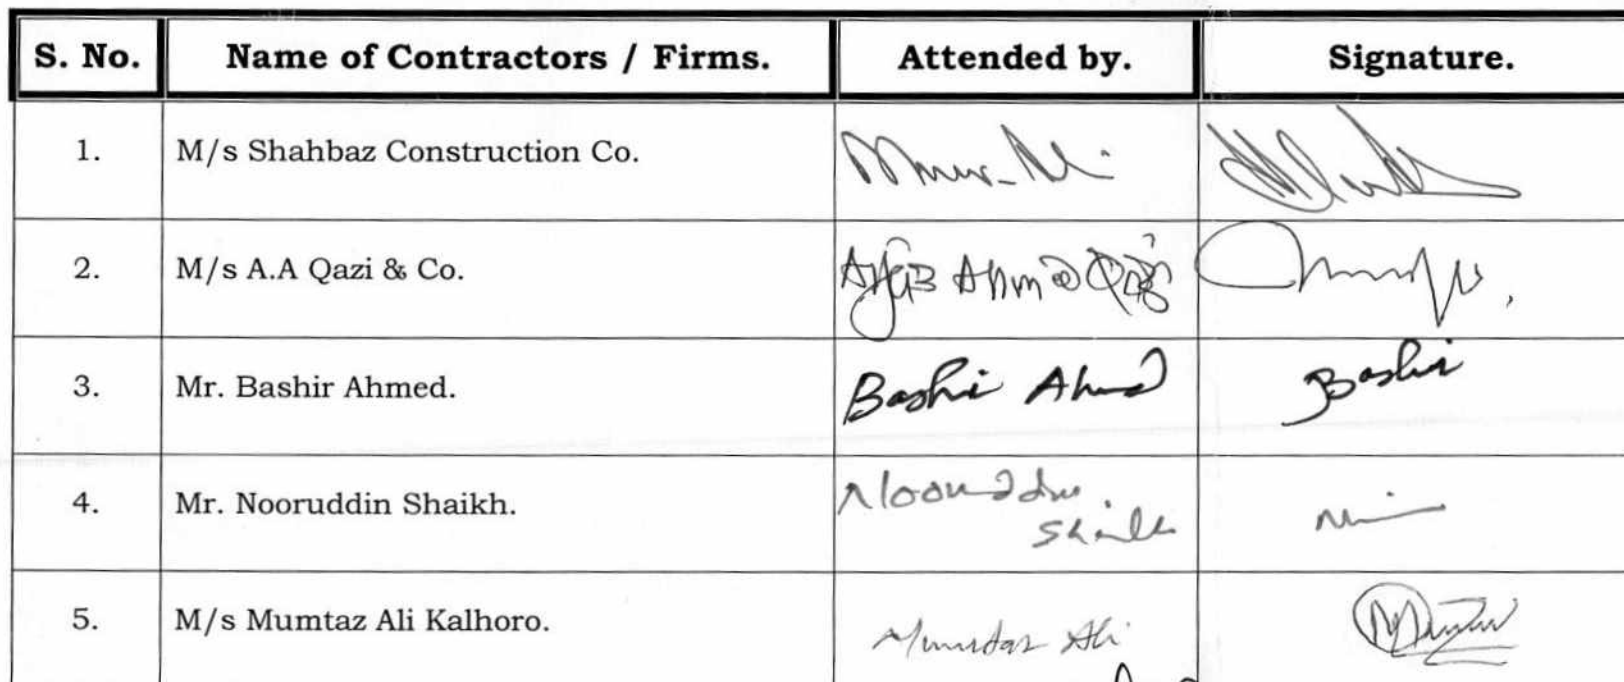 S. No. Name of Contractors / Firms. Attended by. Signature.
1. M/s Shahbaz Construction Co.
2. M/s A.A Qazi & Co. Ahmed Qazi
3. Mr. Bashir Ahmed. Bashir Ahmed Bashir
4. Mr. Nooruddin Shaikh. Nooruddin
Shaikh
5. M/s Mumtaz Ali Kalhoro. Mumtaz Ali